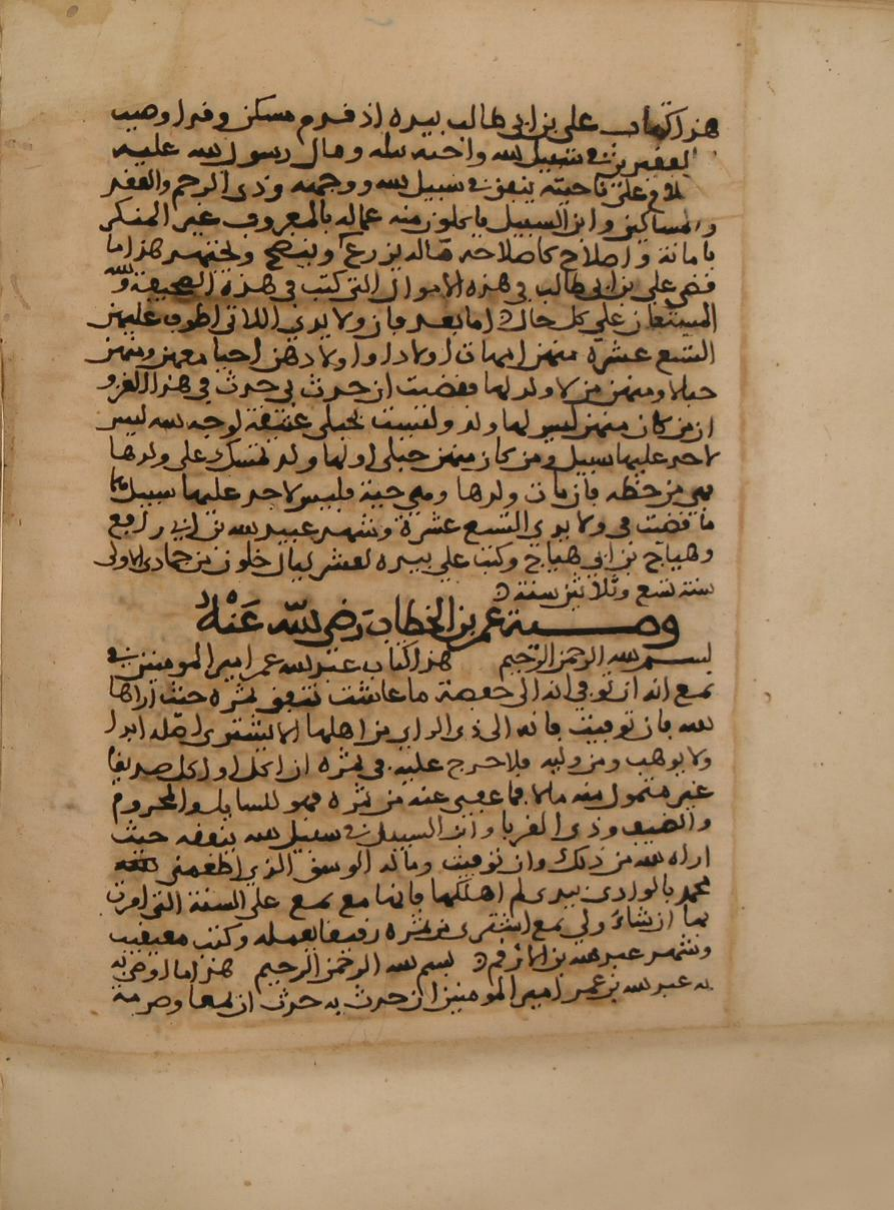 هذا كتاب علي بن ابي طالب بيده اذ قدم مسكن وقد اوصيت
الفقيرين في سبيل الله واجبه بتله وقال رسول الله عليه
ناحيته ينفق في سبيل الله ووجهه وذي الرحم والفقر
والمساكين وابن السبيل ياكلون منه عماله بالمعروف غير المنكر
بامانة واصلاح كاصلاحه ماله يزرع وينصح هذا ما
قضى علي بن ابي طالب في هذه الاموال التي كتب في هذه الصحيفة والله
المستعان على كل حال اما بعد فان ولايدي اللاتي اطوف عليهن
التسع عشرة منهن امهات اولاد او اولادهن احيا معهن ومنهن
حبالا ومنهن من لا ولد لها فقضيت ان حدث بي حدث في هذا الغزو
ان من كان منهن ليس لها ولد وليست بحبلى عتيقة لوجه الله ليس
لاحد عليها سبيل ومن كان منهن حبلى او لها ولد تمسك على ولدها
فهي من حظه فان مات ولدها وهي حية فليس لاحد عليها سبيل هذا
ما قضيت في ولايدي التسع عشرة وشهد عبيد الله بن ابي رافع
وهياج بن ابي هياج وكتب علي بيده لعشر ليال خلون من جمادى الاولى
سنة تسع وثلاثين سنة
وصية عمر بن الخطاب رضي الله عنه
بسم الله الرحمن الرحيم هذا كتاب عبد الله عمر امير المومنين في
ثمغ انه ان توفي انه الى حفصة ما عاشت تنفق ثمره حيث اراها
الله فان توفيت فانه الى ذي الراي من اهلها الا يشترى اصله ابدا
ولا يوهب ومن وليه فلا حرج عليه في ثمره ان اكل او اكل صديقا
غير متمول منه مالا فما عفى عنه من ثمره فهو للسايل والمحروم
والضيف وذي القربا وابن السبيل في سبيل الله ينفقه حيث
اراه الله من ذلك وان توفيت وماله الوسق الذي اطعمني
محمد بالوادي بيدي لم اهلكها فانها مع ثمغ على السنة التي امرت
بها ان شاء ولي ثمغ اشترى من ثمره رقيقا يعمله وكتب معيقيب
وشهد عبد الله بن الارقم بسم الله الرحمن الرحيم هذا ما اوصى به
به عبد الله بن عمر امير المومنين ان حدث به حدث ان ثمغا وصرمة